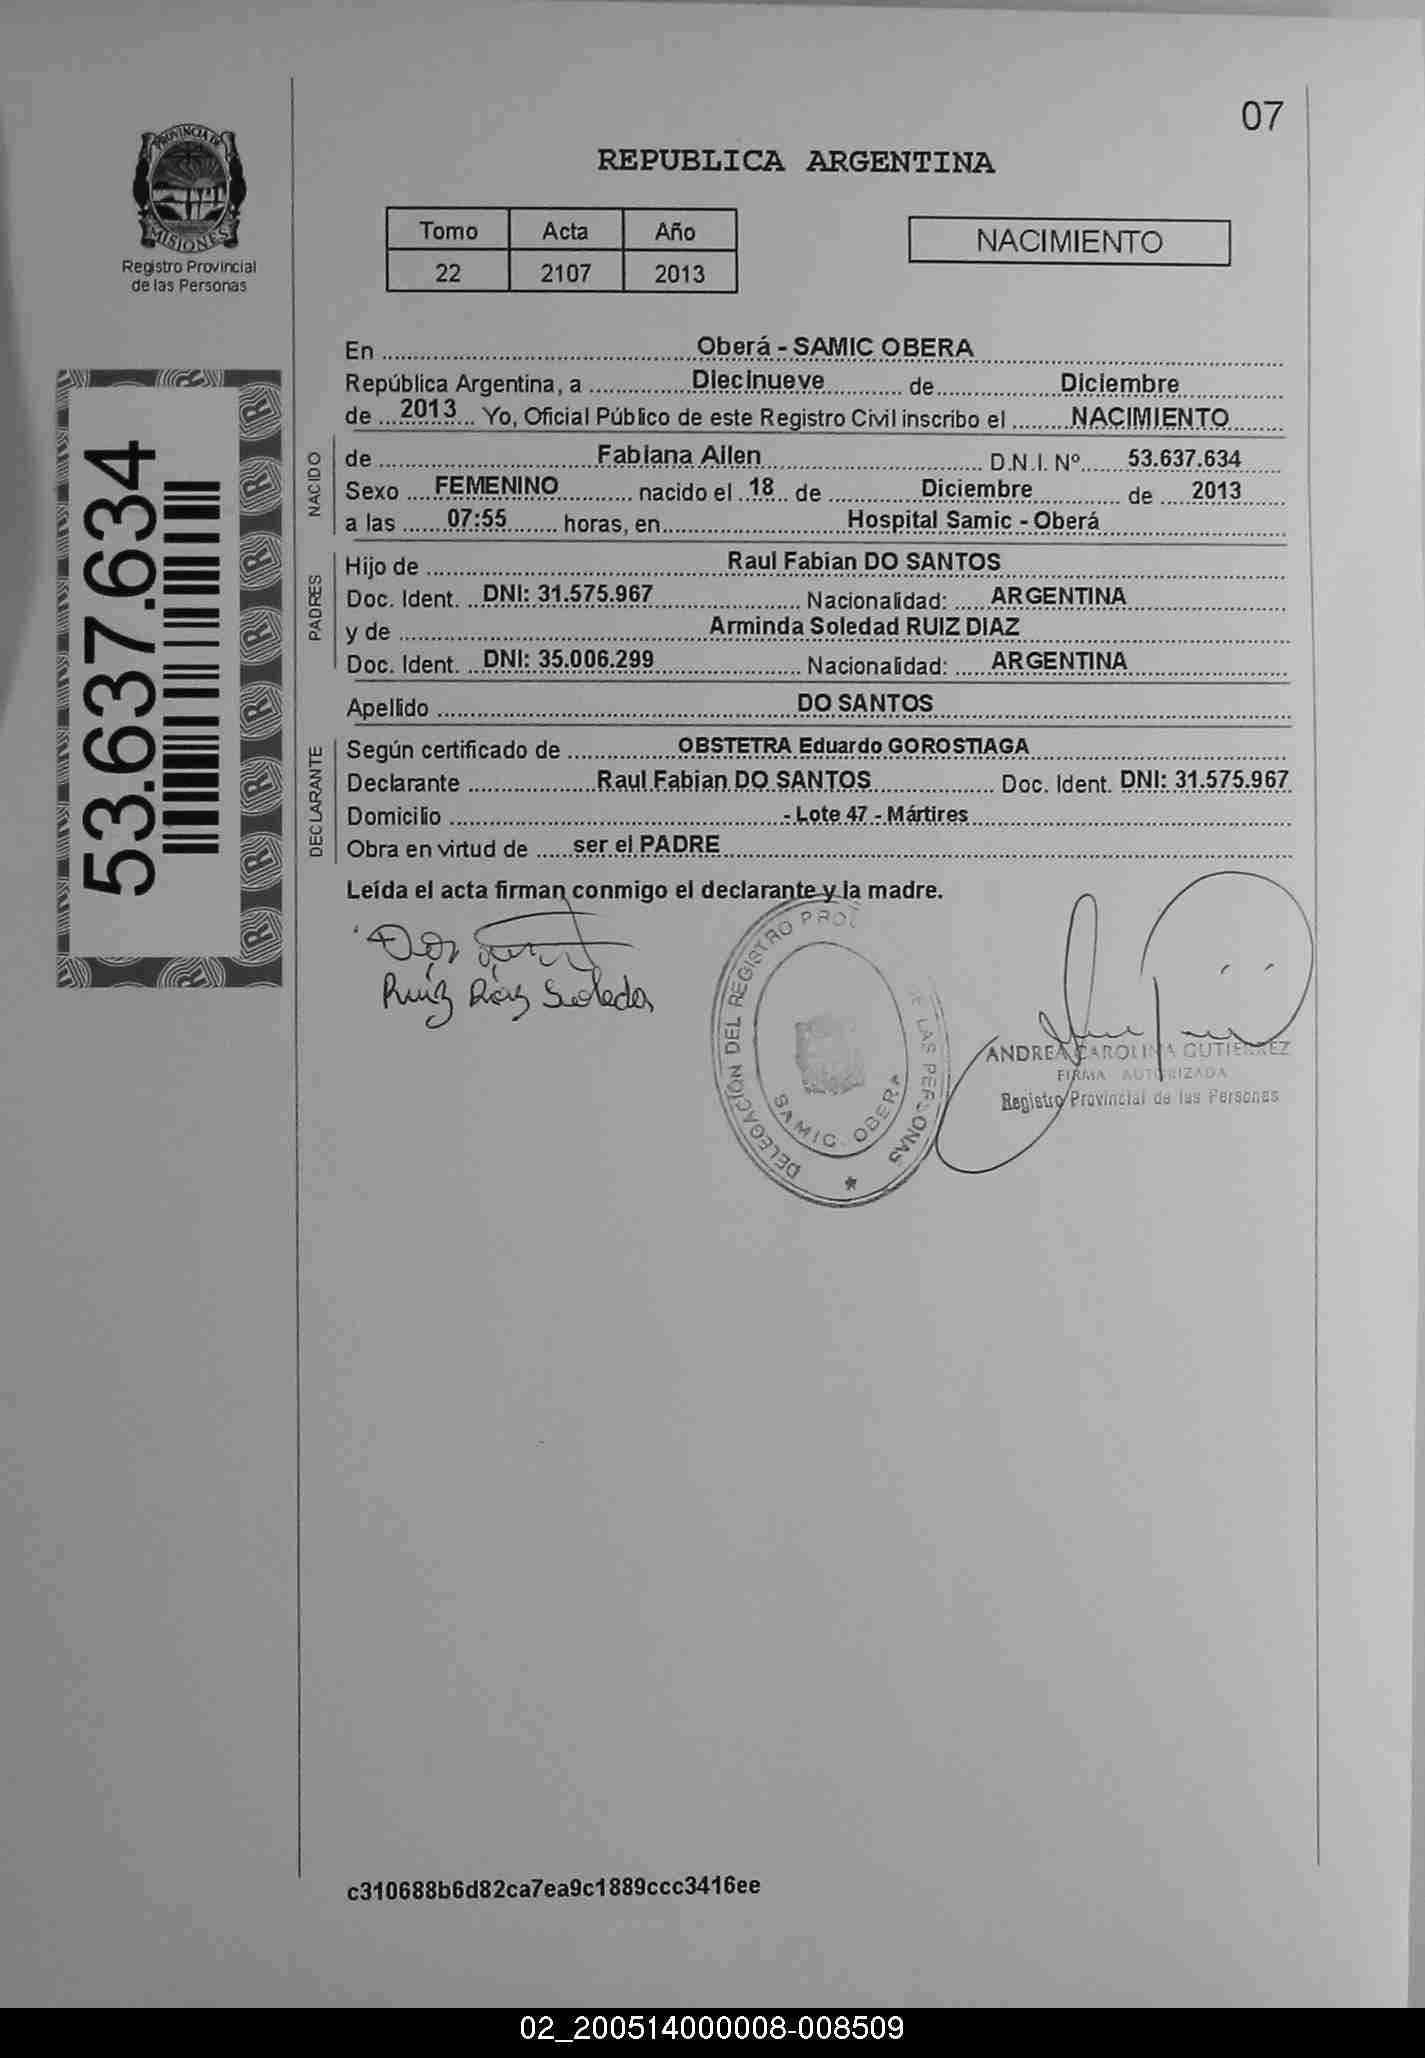 07
PROVINCIA DE
MISIONES
Registro Provincial
de las Personas
REPUBLICA ARGENTINA
Tomo Acta Año
22 2107 2013
NACIMIENTO
53.637.634
En Oberá - SAMIC OBERA
República Argentina, a Diecinueve de Diciembre
de 2013 Yo, Oficial Público de este Registro Civil inscribo el NACIMIENTO
NACIDO
de Fabiana Ailen D.N.I. Nº 53.637.634
Sexo FEMENINO nacido el 18 de Diciembre de 2013
a las 07:55 horas, en Hospital Samic - Oberá
PADRES
Hijo de Raul Fabian DO SANTOS
Doc. Ident. DNI: 31.575.967 Nacionalidad: ARGENTINA
y de Arminda Soledad RUIZ DIAZ
Doc. Ident. DNI: 35.006.299 Nacionalidad: ARGENTINA
Apellido DO SANTOS
DECLARANTE
Según certificado de OBSTETRA Eduardo GOROSTIAGA
Declarante Raul Fabian DO SANTOS Doc. Ident. DNI: 31.575.967
Domicilio - Lote 47 - Mártires
Obra en virtud de ser el PADRE
Leída el acta firman conmigo el declarante y la madre.
Ruiz Diaz Soledad
DELEGACIÓN DEL REGISTRO DE LAS PERSONAS
SAMIC. OBERA
ANDREA CAROLINA GUTIERREZ
FIRMA AUTORIZADA
Registro Provincial de las Personas
c310688b6d82ca7ea9c1889ccc3416ee
02_200514000008-008509